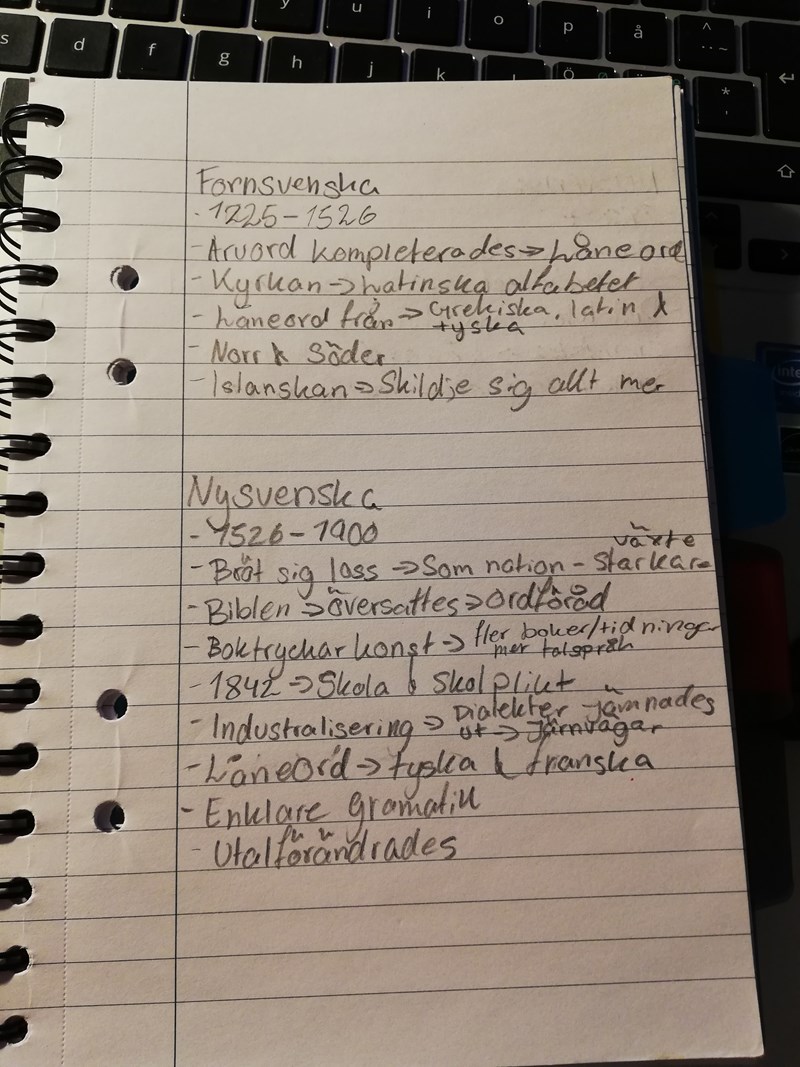 y u i o p å ^
s d f g h j k Ö
*
Fornsvenska
- 1225-1526
- Arvord kompleterades => Låneord
- Kyrkan -> Latinska alfabetet
- Låneord från => Grekiska, latin &
tyska
- Norr & Söder
- Islanskan => Skildje sig allt mer
Nysvenska
- 1526-1900
växte
- Bröt sig loss => Som nation - starkare
- Biblen => översattes => ordföråd
- Boktryckarkonst => fler böker/tidningar
mer talspråk
- 1842 => Skola & skolplikt
- Industralisering => Dialekter jämnades
ut => Järnvägar
- Låneord -> tyska & franska
- Enklare gramatik
- Utalförändrades
inte